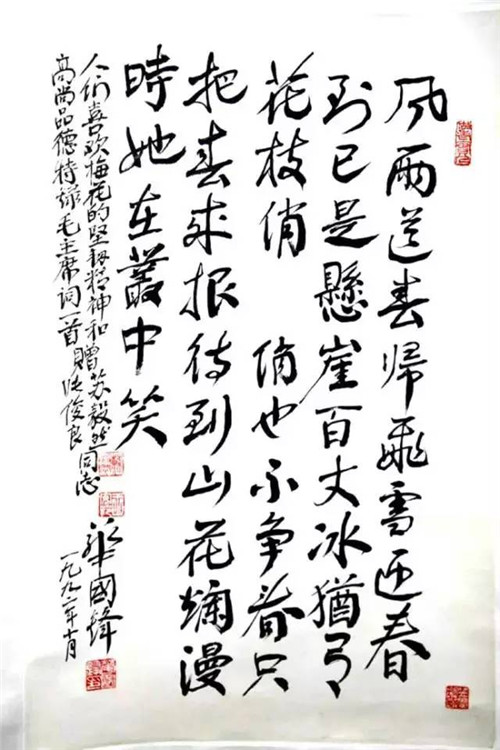 风雨送春歸飛雪迎春
到已是懸崖百丈冰猶有
花枝俏 俏也不争春只
把春来报待到山花爛漫
時她在叢中笑
人们喜欢梅花的坚韧精神和赠苏毅然同志
高尚品德特录毛主席词一首赠张俊良
華國鋒
一九九二年十月